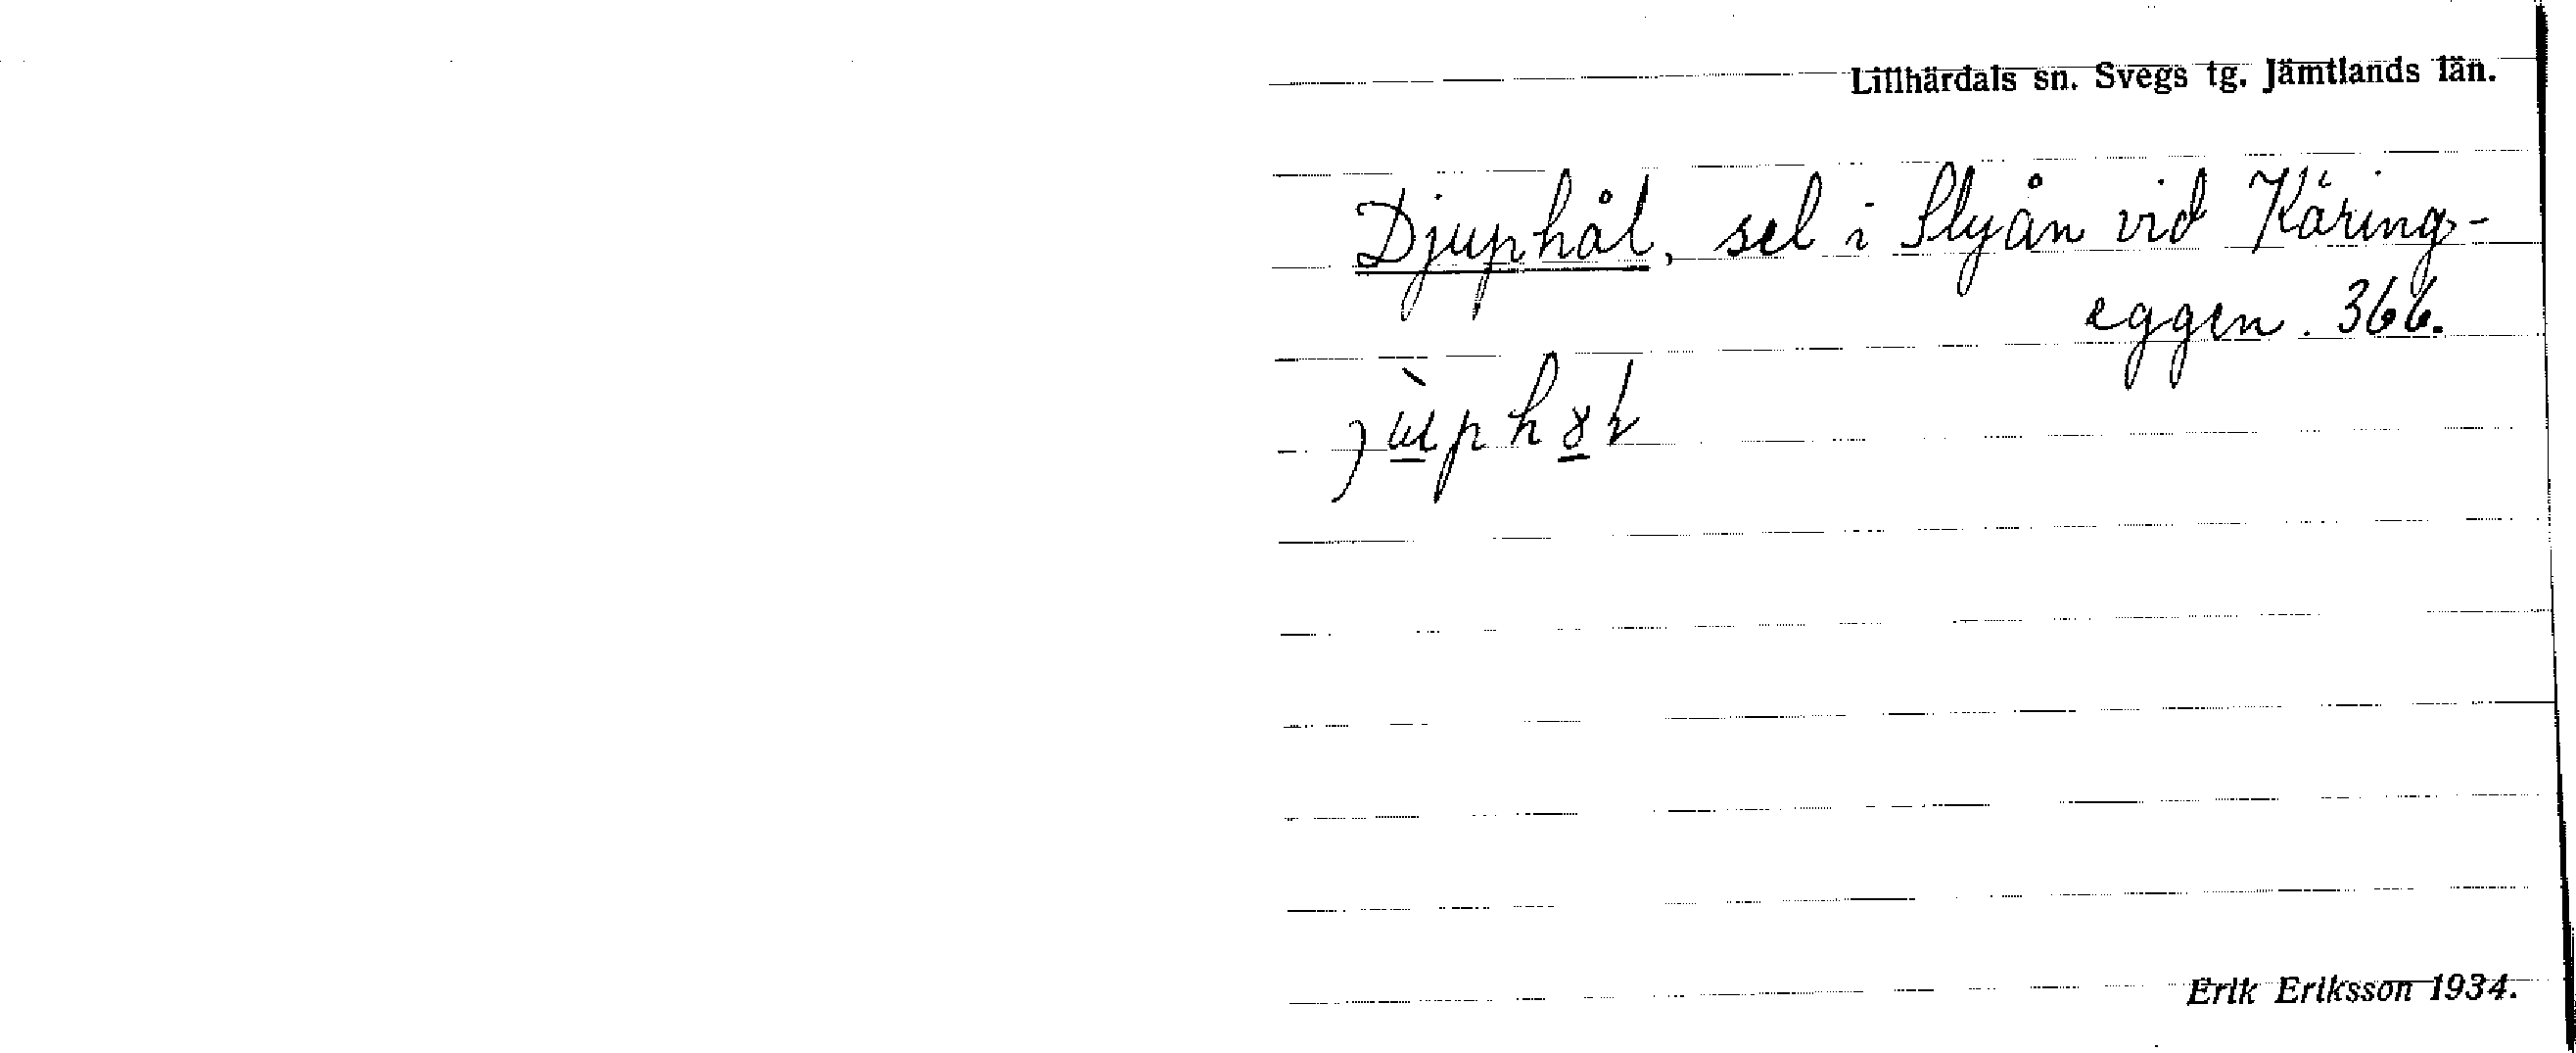 Lillhärdals sn. Svegs tg. Jämtlands län.
Djuphål, sel i Slyån vid Käring-
eggen. 366.
Erik Eriksson 1934.